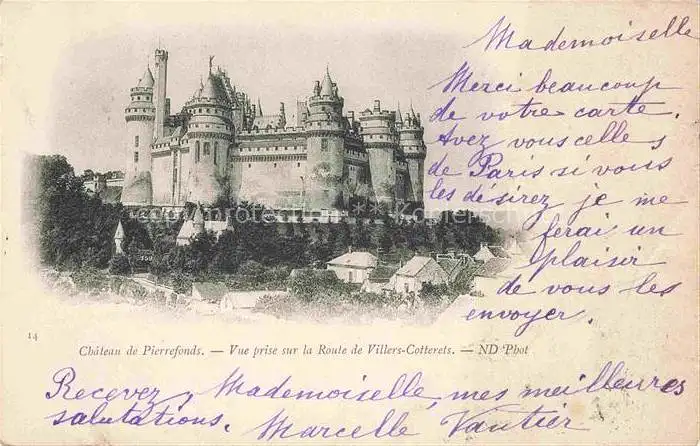 Mademoiselle
Merci beaucoup
de votre carte.
Avez vous celles
de Paris si vous
les désirez je me
ferai un
plaisir
de vous les
envoyer.
14
Château de Pierrefonds. — Vue prise sur la Route de Villers-Cotterets. — ND Phot
Recevez, Mademoiselle, mes meilleures
salutations. Marcelle Vautier